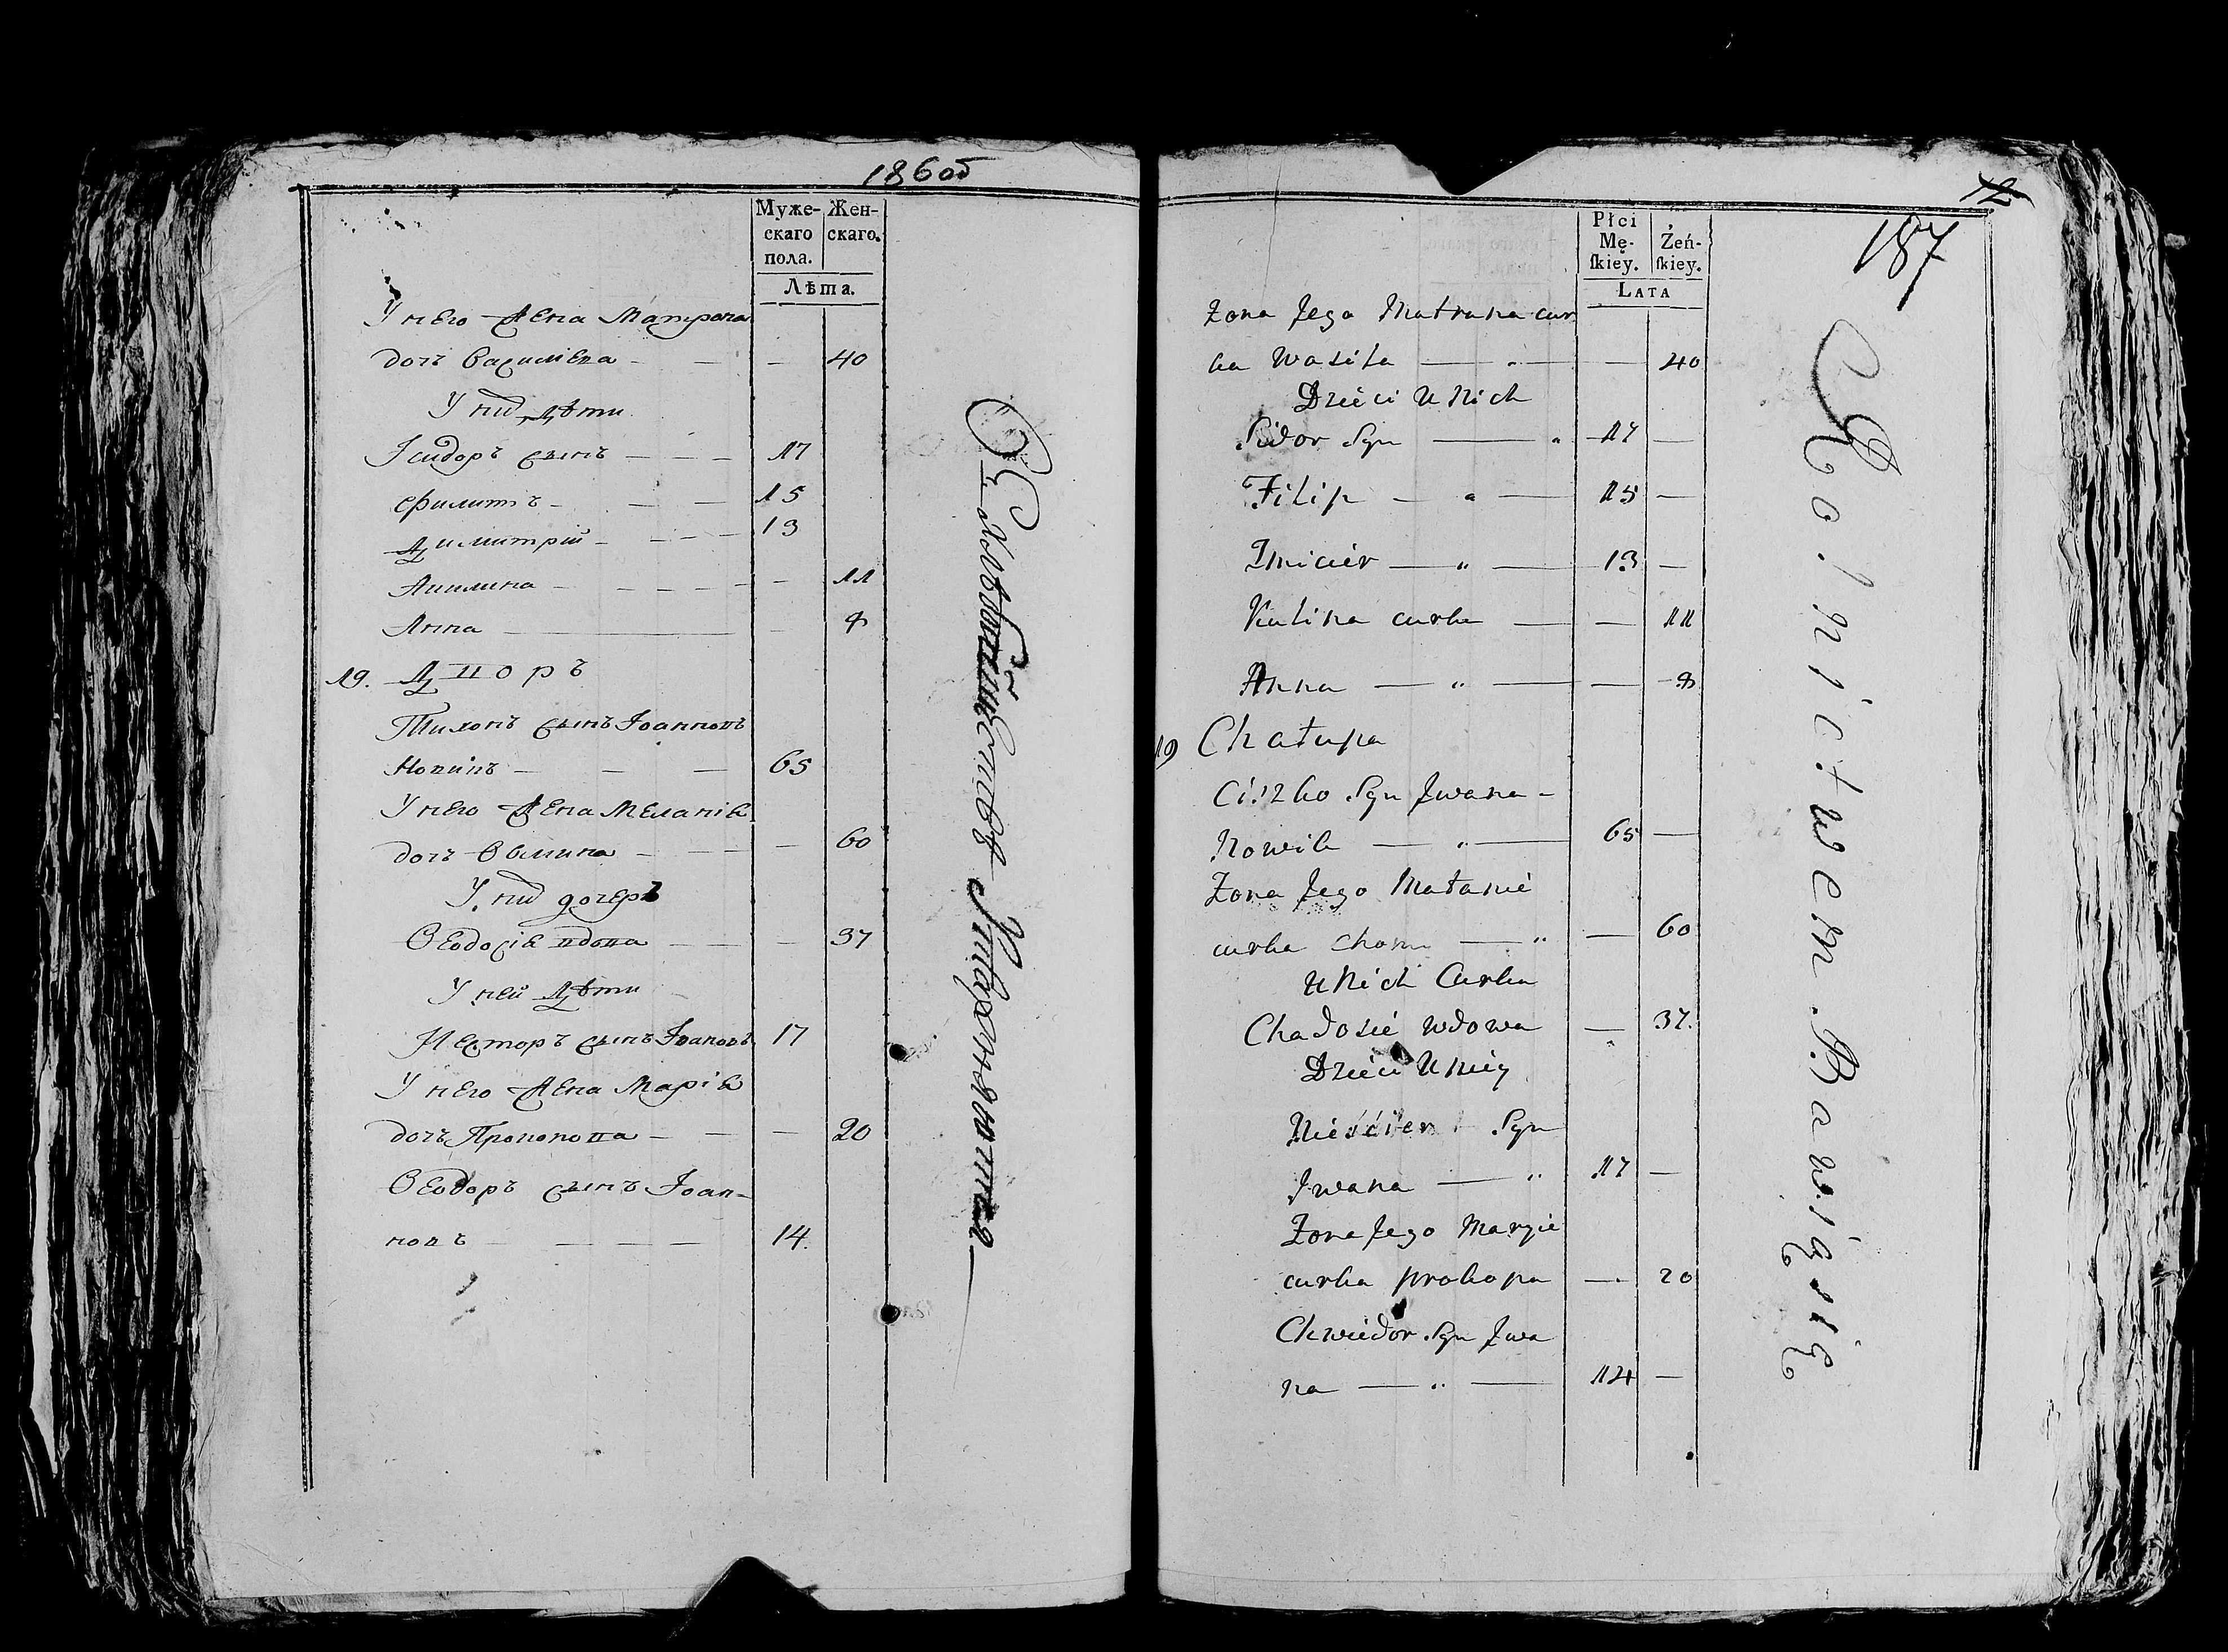 186об
Муже-
скаго
пола.
Жен-
скаго.
Лѣта.
У него жена Матрона
дочь Василіева - — - 40
У нихъ дѣти
Ісидоръ сынъ - - - 17
Филиппъ - - - 15
Димитрій - - - 13
Акилина - - - 11
Анна - - 8
19. Дворъ
Тихонъ сынъ Іоанновъ
Новикъ - - - 65
У него жена Меланія
дочь Ѳомина - - - 60
У нихъ дочерь
Ѳеодосія вдова - - - 37
У ней дѣти
Несторъ сынъ Іоановъ 17
У него жена Марія
дочь Прокопова - - - 20
Ѳеодоръ сынъ Іоан-
новъ - - - 14.
Земледѣльствомъ Упражняются
12
187
Płci
Mę-
skiey.
Żeń-
skiey.
LATA
Żona Jego Matruna cur
ka Wasila — „ — — 40
Dzieci U Nich
Sidor Syn — „ 17 —
Filip — „ — 15 —
Zmicier — „ — 13 —
Kulina curka — — 11
Anna — „ — — 8
19 Chałupa
Ciszko Syn Jwana -
Nowik — „ — 65 —
Żona Jego Małanie
curka Chomy — „ — 60
U Nich Curka
Chadosie wdowa — 37.
Dzieci U Niey
Nieścier Syn
Jwana — „ 17 —
Żona Jego Maryie
curka prokopa — 20
Chwiedor Syn Jwa
na — „ — 14 —
Rolnictwem Bawią się